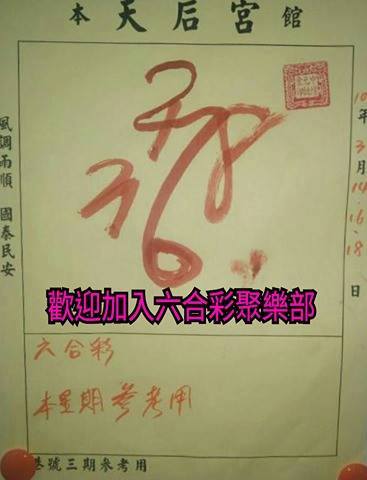 本天后宮館
風調雨順 國泰民安
2 7 8
3 6
10年3月14.16.18日
歡迎加入六合彩聚樂部
六合彩
本星期參考用
三期參考用